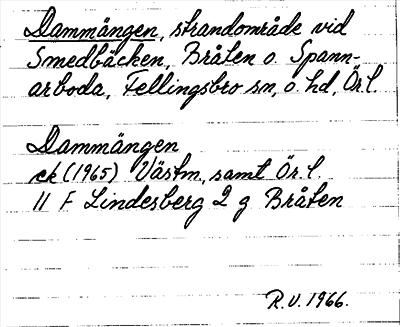 Dammängen, strandområde vid
Smedbäcken, Bråten o. Spann-
arboda, Fellingsbro sn, o. hd, Ör.l.
Dammängen
ek (1965) Västm, samt Ör.l.
11 F Lindesberg 2 g Bråten
R.V. 1966.